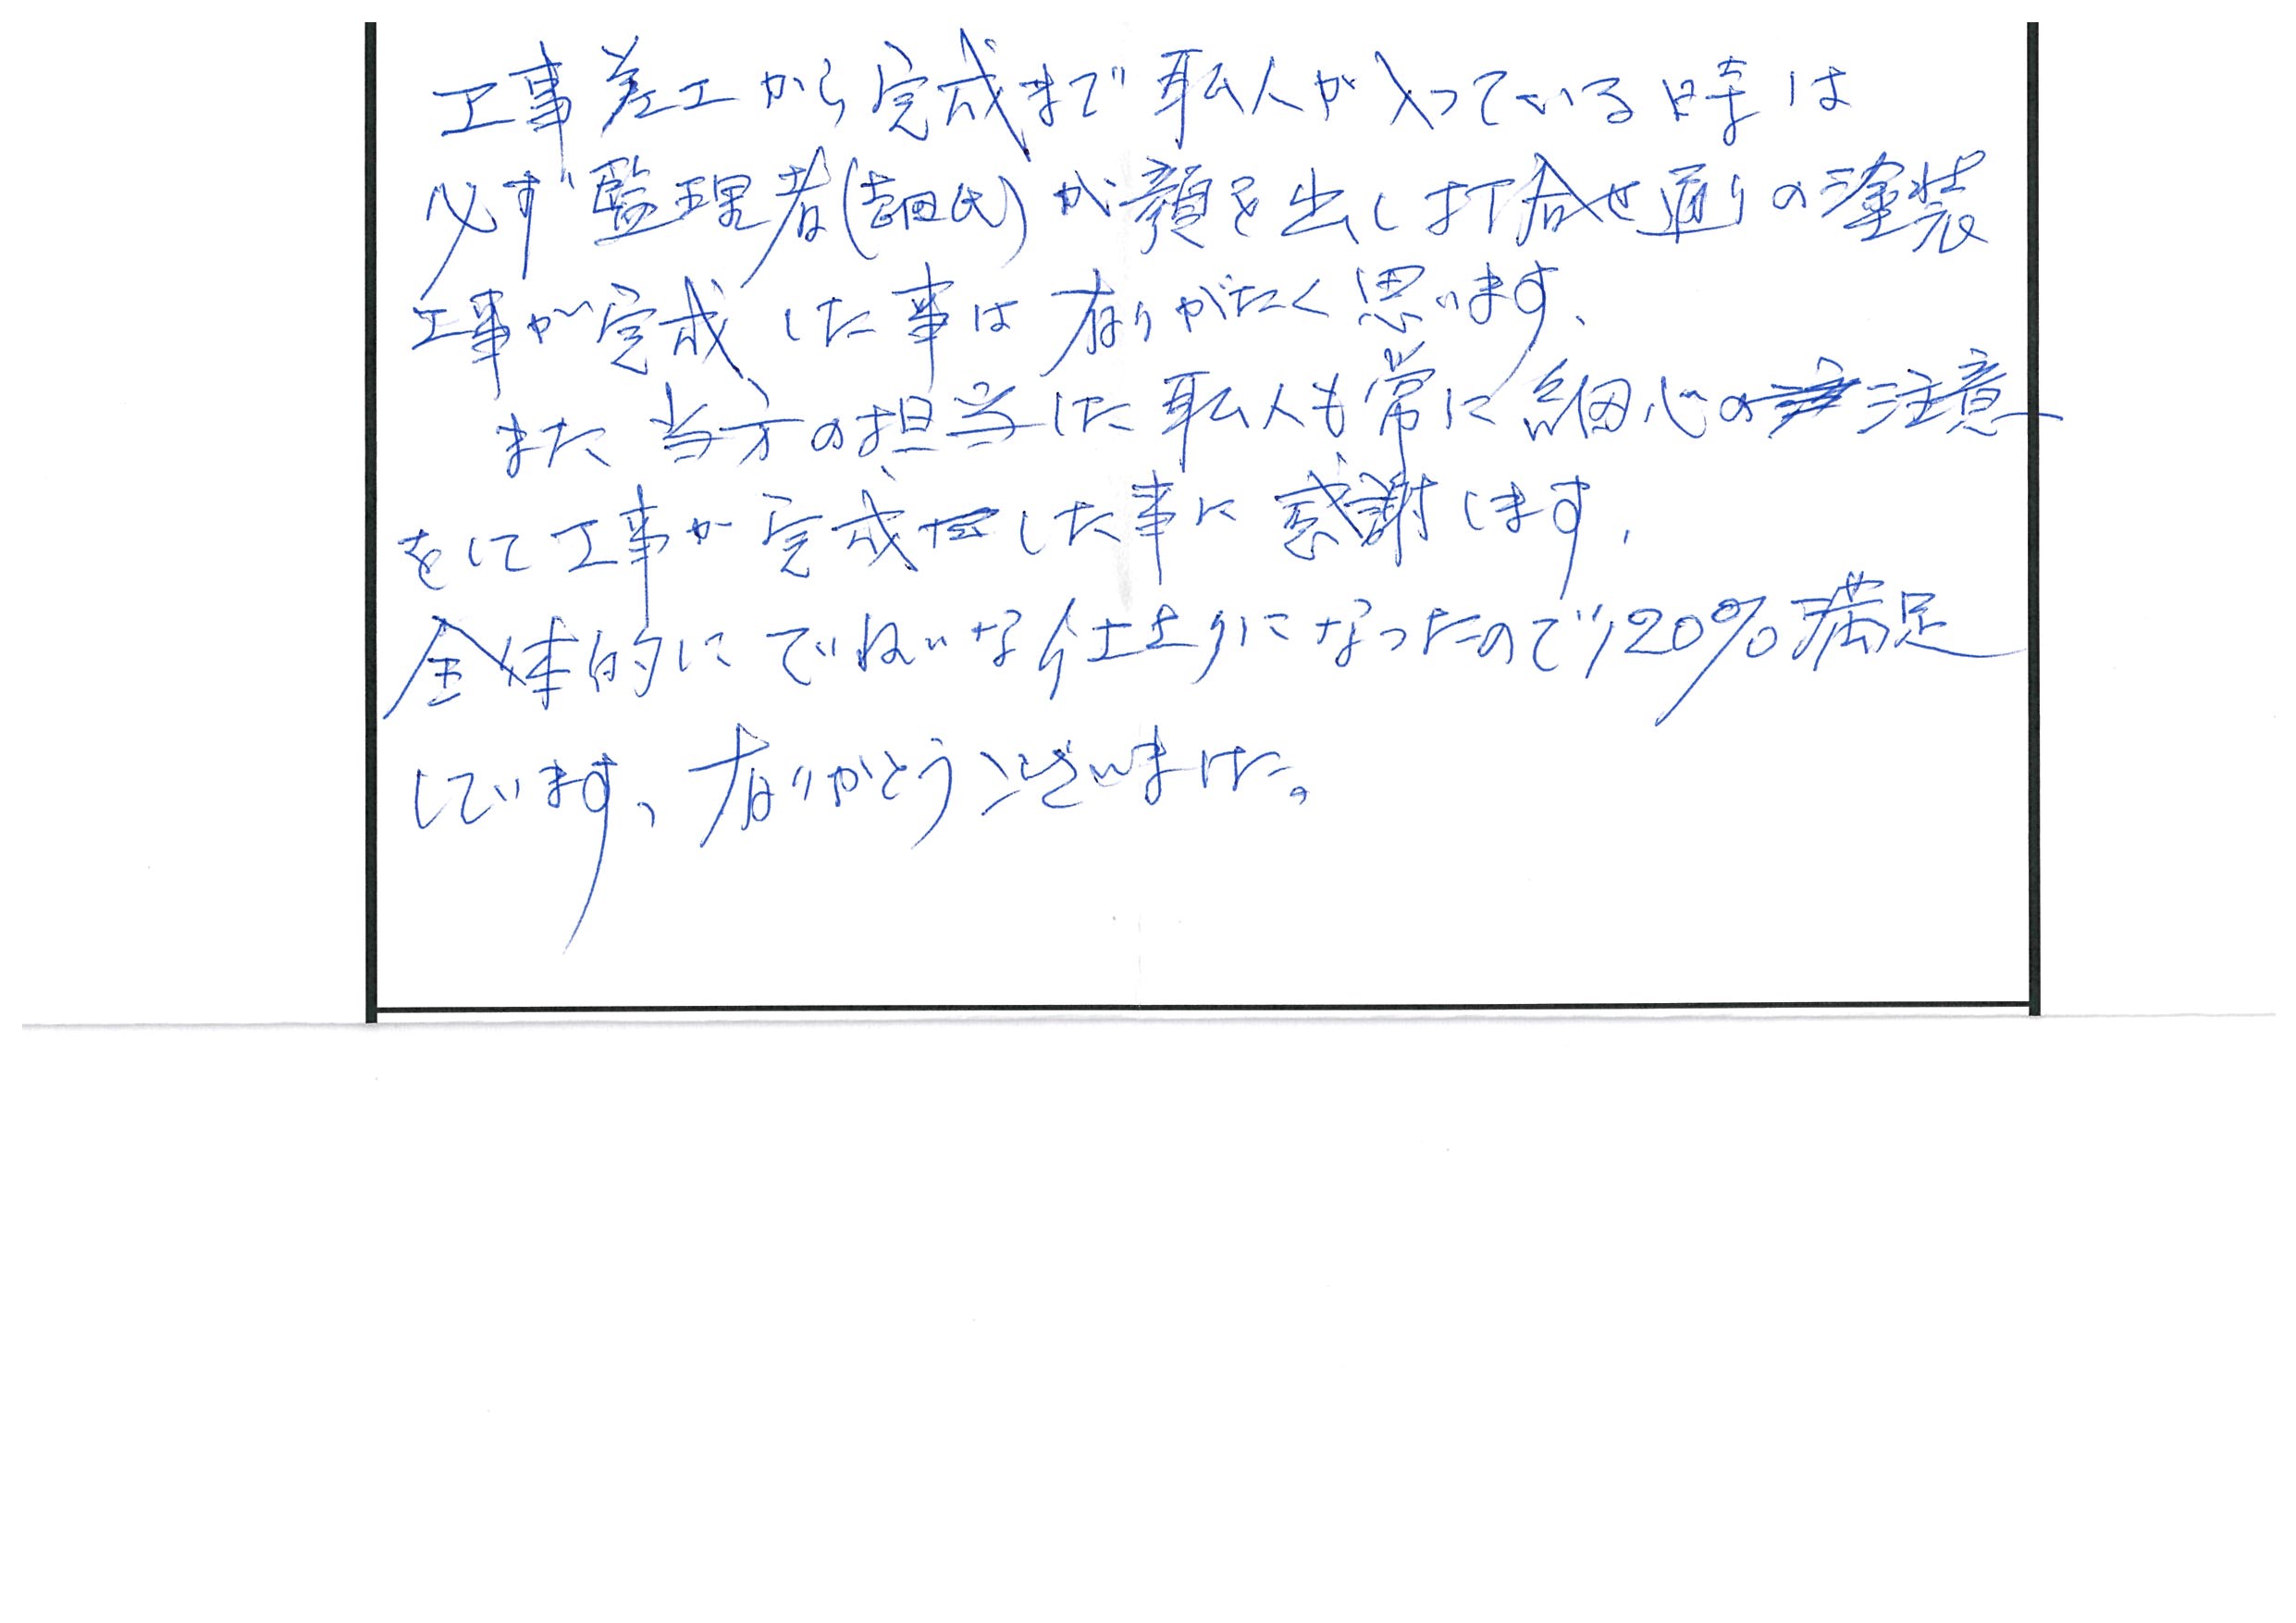 工事差工から完成まで職人が入っている時は
必ず監理者(吉田氏)が顔を出し打合せ通りの塗装
工事が完成した事は有りがたく思います、
また当方の担当した職人も常に細心の注意
をして工事が完成した事に感謝します、
全体的にていねいな仕上りになったので120%満足
しています、有りがとうございました。